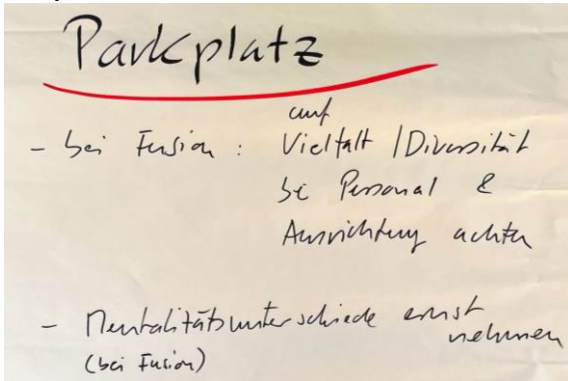 Parkplatz
auf
- bei Fusion : Vielfalt / Diversität
bei Personal &
Ausrichtung achten
- Mentalitätsunterschiede ernst
nehmen
(bei Fusion)